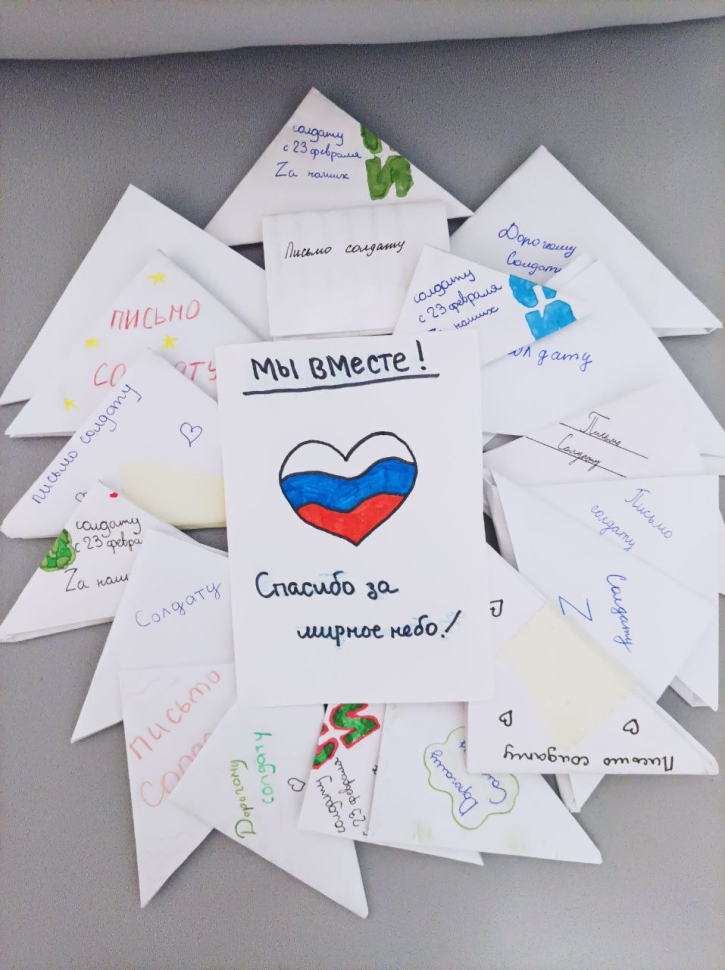 солдату
с 23 февраля
Zа наших
Письмо солдату
Дорогому
Солдату
солдату
с 23 февраля
Zа наших
солдату
ПИСЬМО
СОЛДАТУ
письмо солдату
Мы вместе!
Письмо
Солдату
Письмо
солдату
солдату
с 23 февра
Zа наши
Солдату
Z
Солдату
Спасибо за
мирное небо!
письмо
Солд
Дорогому
солдату
солдату
23 февраля
Дорогому
Сол
Письмо солдату